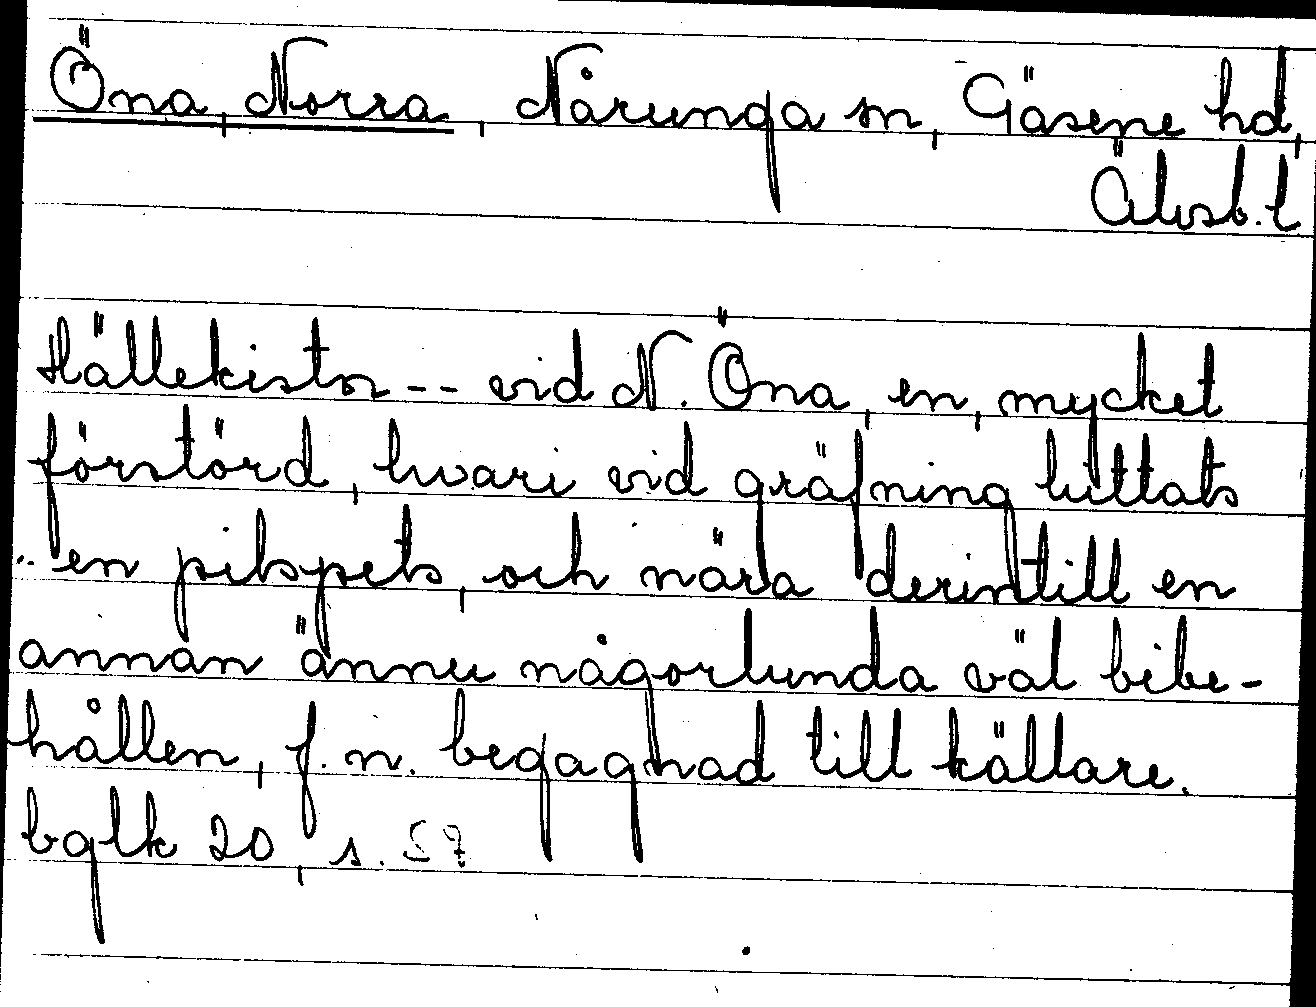 Öna, Norra, Nårunga sn, Gäsene hd,
Älvsb. l
Hällekistor -- vid N. Öna, en, mycket
förstörd, hvari vid gräfning hittats
.. en pilspets, och nära derintill en
annan ännu någorlunda väl bibe-
hållen, f. n. begagnad till källare.
bglk 20, s. 57